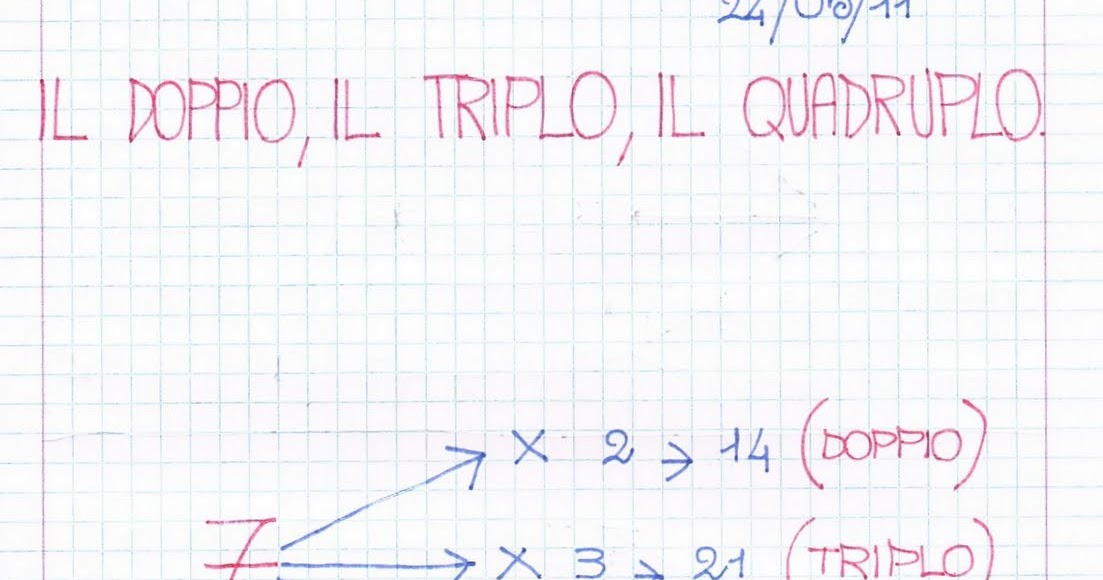 24/05/11
IL DOPPIO, IL TRIPLO, IL QUADRUPLO.
X 2 → 14 (DOPPIO)
7 X 3 → 21 (TRIPLO)